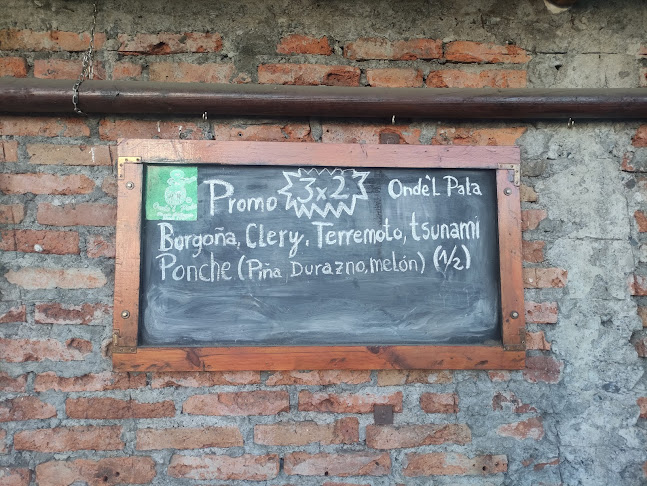 Promo 3x2 Onde'l Pala
Borgoña, Clery, Terremoto, tsunami
Ponche (Piña Durazno, melón) (1/2)